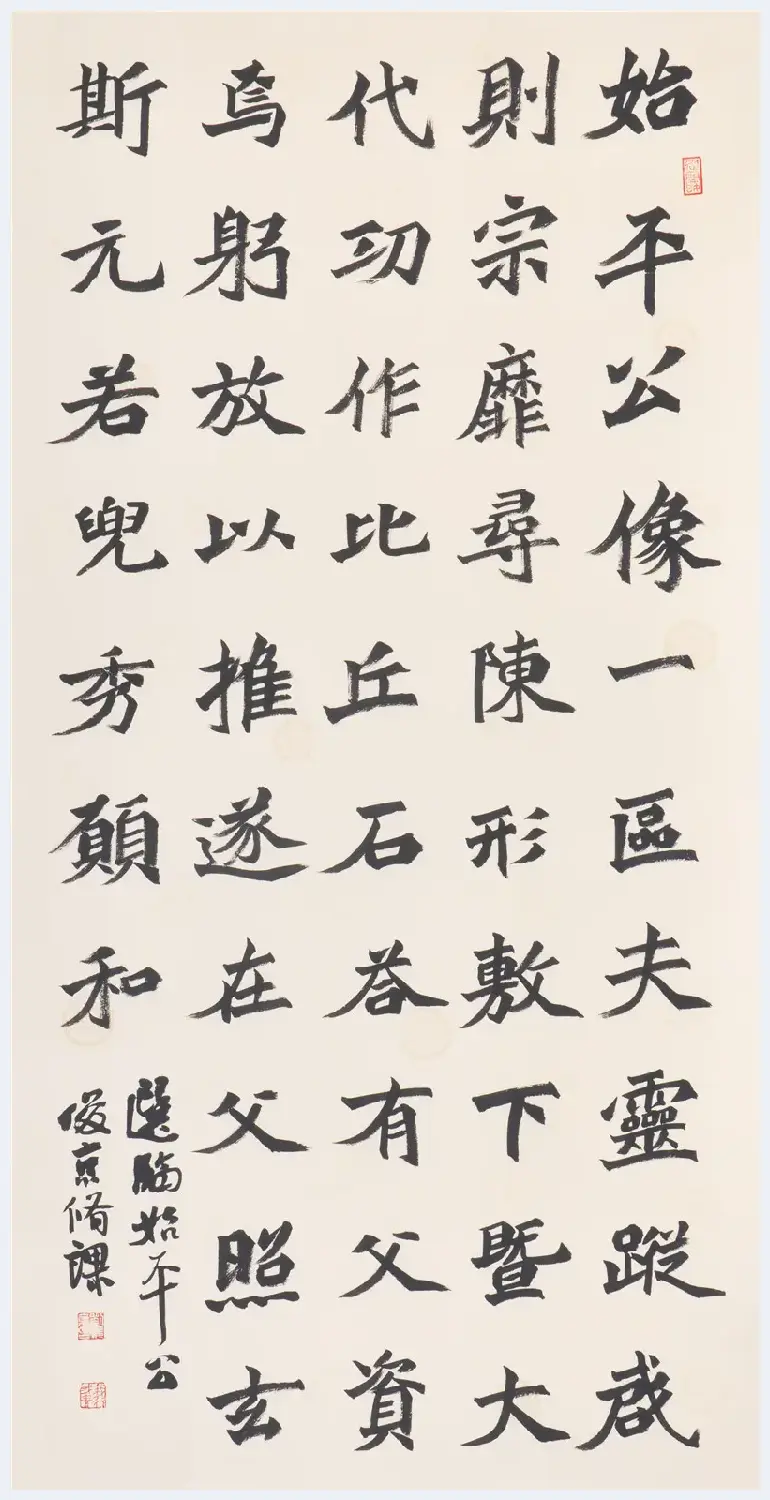 始平公像一區夫靈蹤咸
則宗靡尋陳形敷下暨大
代功作比丘石荅有父資
焉躬放以推遂在父照玄
斯元若兜秀願和
選臨始平公
俊京脩課